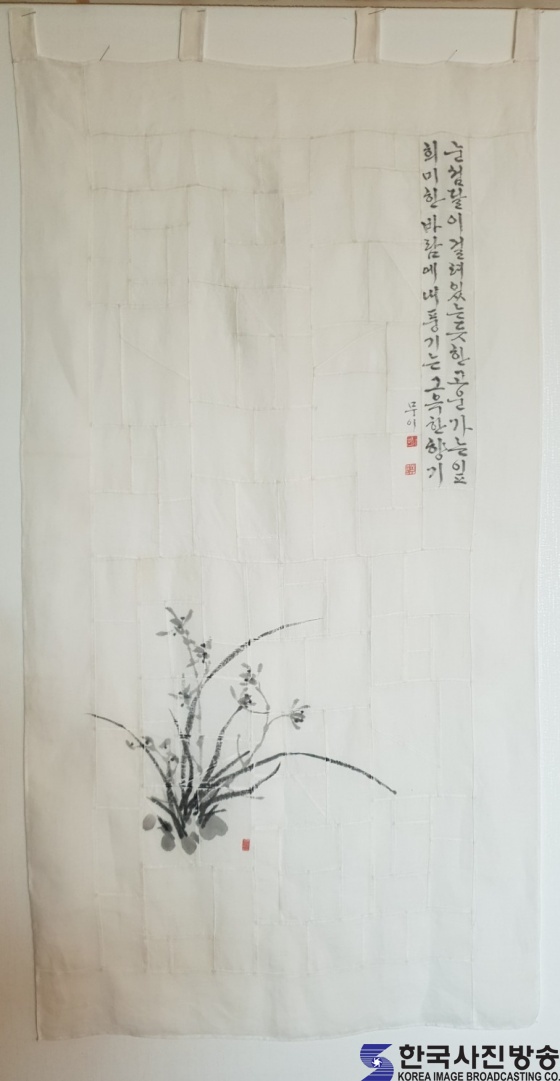 눈썹달이 걸려있는듯한 고운 가는 잎
희미한 바람에 내풍기는 그윽한 향기
무이
한국사진방송
KOREA IMAGE BROADCASTING CO.